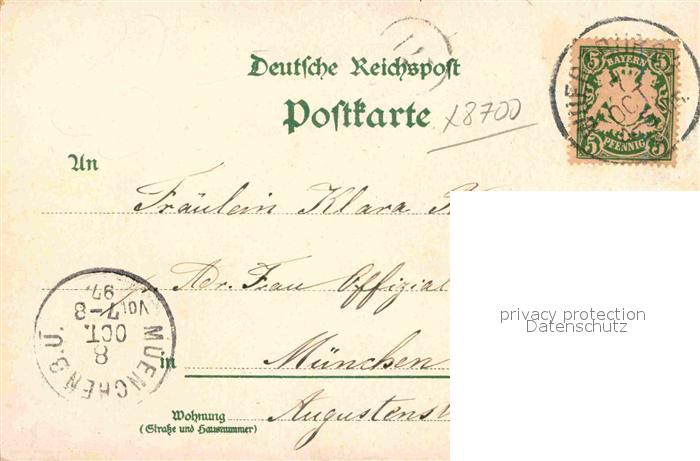 Deutsche Reichspost
Postkarte
x8700
BAYERN
5 5
OCT
5 PFENNIG 5
An
Fräulein Klara
Adr. Frau Offizial
in München
Wohnung
(Straße und Hausnummer)
Augustenst
MUENCHEN B.U.
8
OCT.
Vor 7-8
97.
privacy protection
Datenschutz